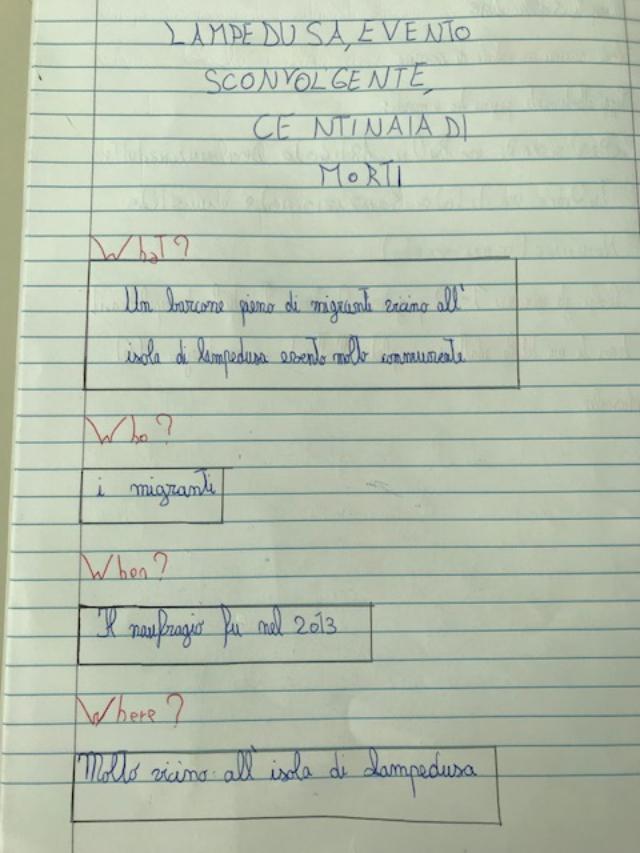 LAMPEDUSA, EVENTO
SCONVOLGENTE,
CENTINAIA DI
MORTI
What?
Un barcone pieno di migranti vicino all'
isola di lampedusa evento molto
Who?
i migranti
When?
Il naufragio fu nel 2013
Where?
Molto vicino all'isola di Lampedusa